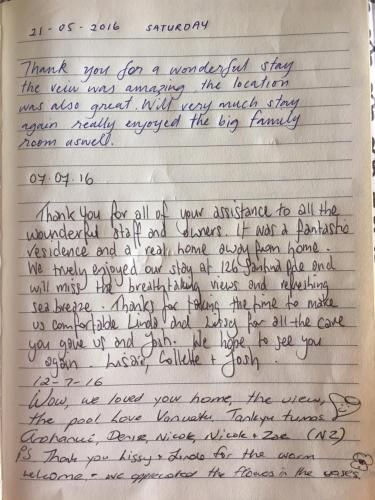 21-05-2016 SATURDAY
Thank you for a wonderful stay
the veiw was amazing the location
was also great. Will very much stay
again really enjoyed the big family
room aswell.
07.07.16
Thank You for all of your assistance to all the
wounderful staff and owners. It was a fantastic
residence and a real home away from home.
We truely enjoyed our stay at 126 and
will miss the breathtaking views and refreshing
sea breeze. Thanks for taking the time to make
us comfortable Linda and Lissy for all the care
you gave us and Josh. We hope to see you
again. Collette + Josh
12-7-16
Wow, we loved your home, the view,
the pool. Love Vanuatu, Tankyu tumas
Denise, Nicole, Nicole + Zoe (NZ)
PS Thank you Lissy + Linda for the warm
welcome - we appreciated the flowers in the vases.